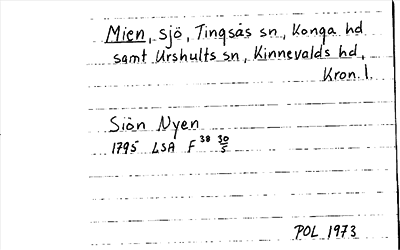 Mien, sjö, Tingsås sn, Konga hd
samt Urshults sn, Kinnevalds hd,
Kron. l.
Siön Nyen
1795 LSA F 38 30/5
POL 1973